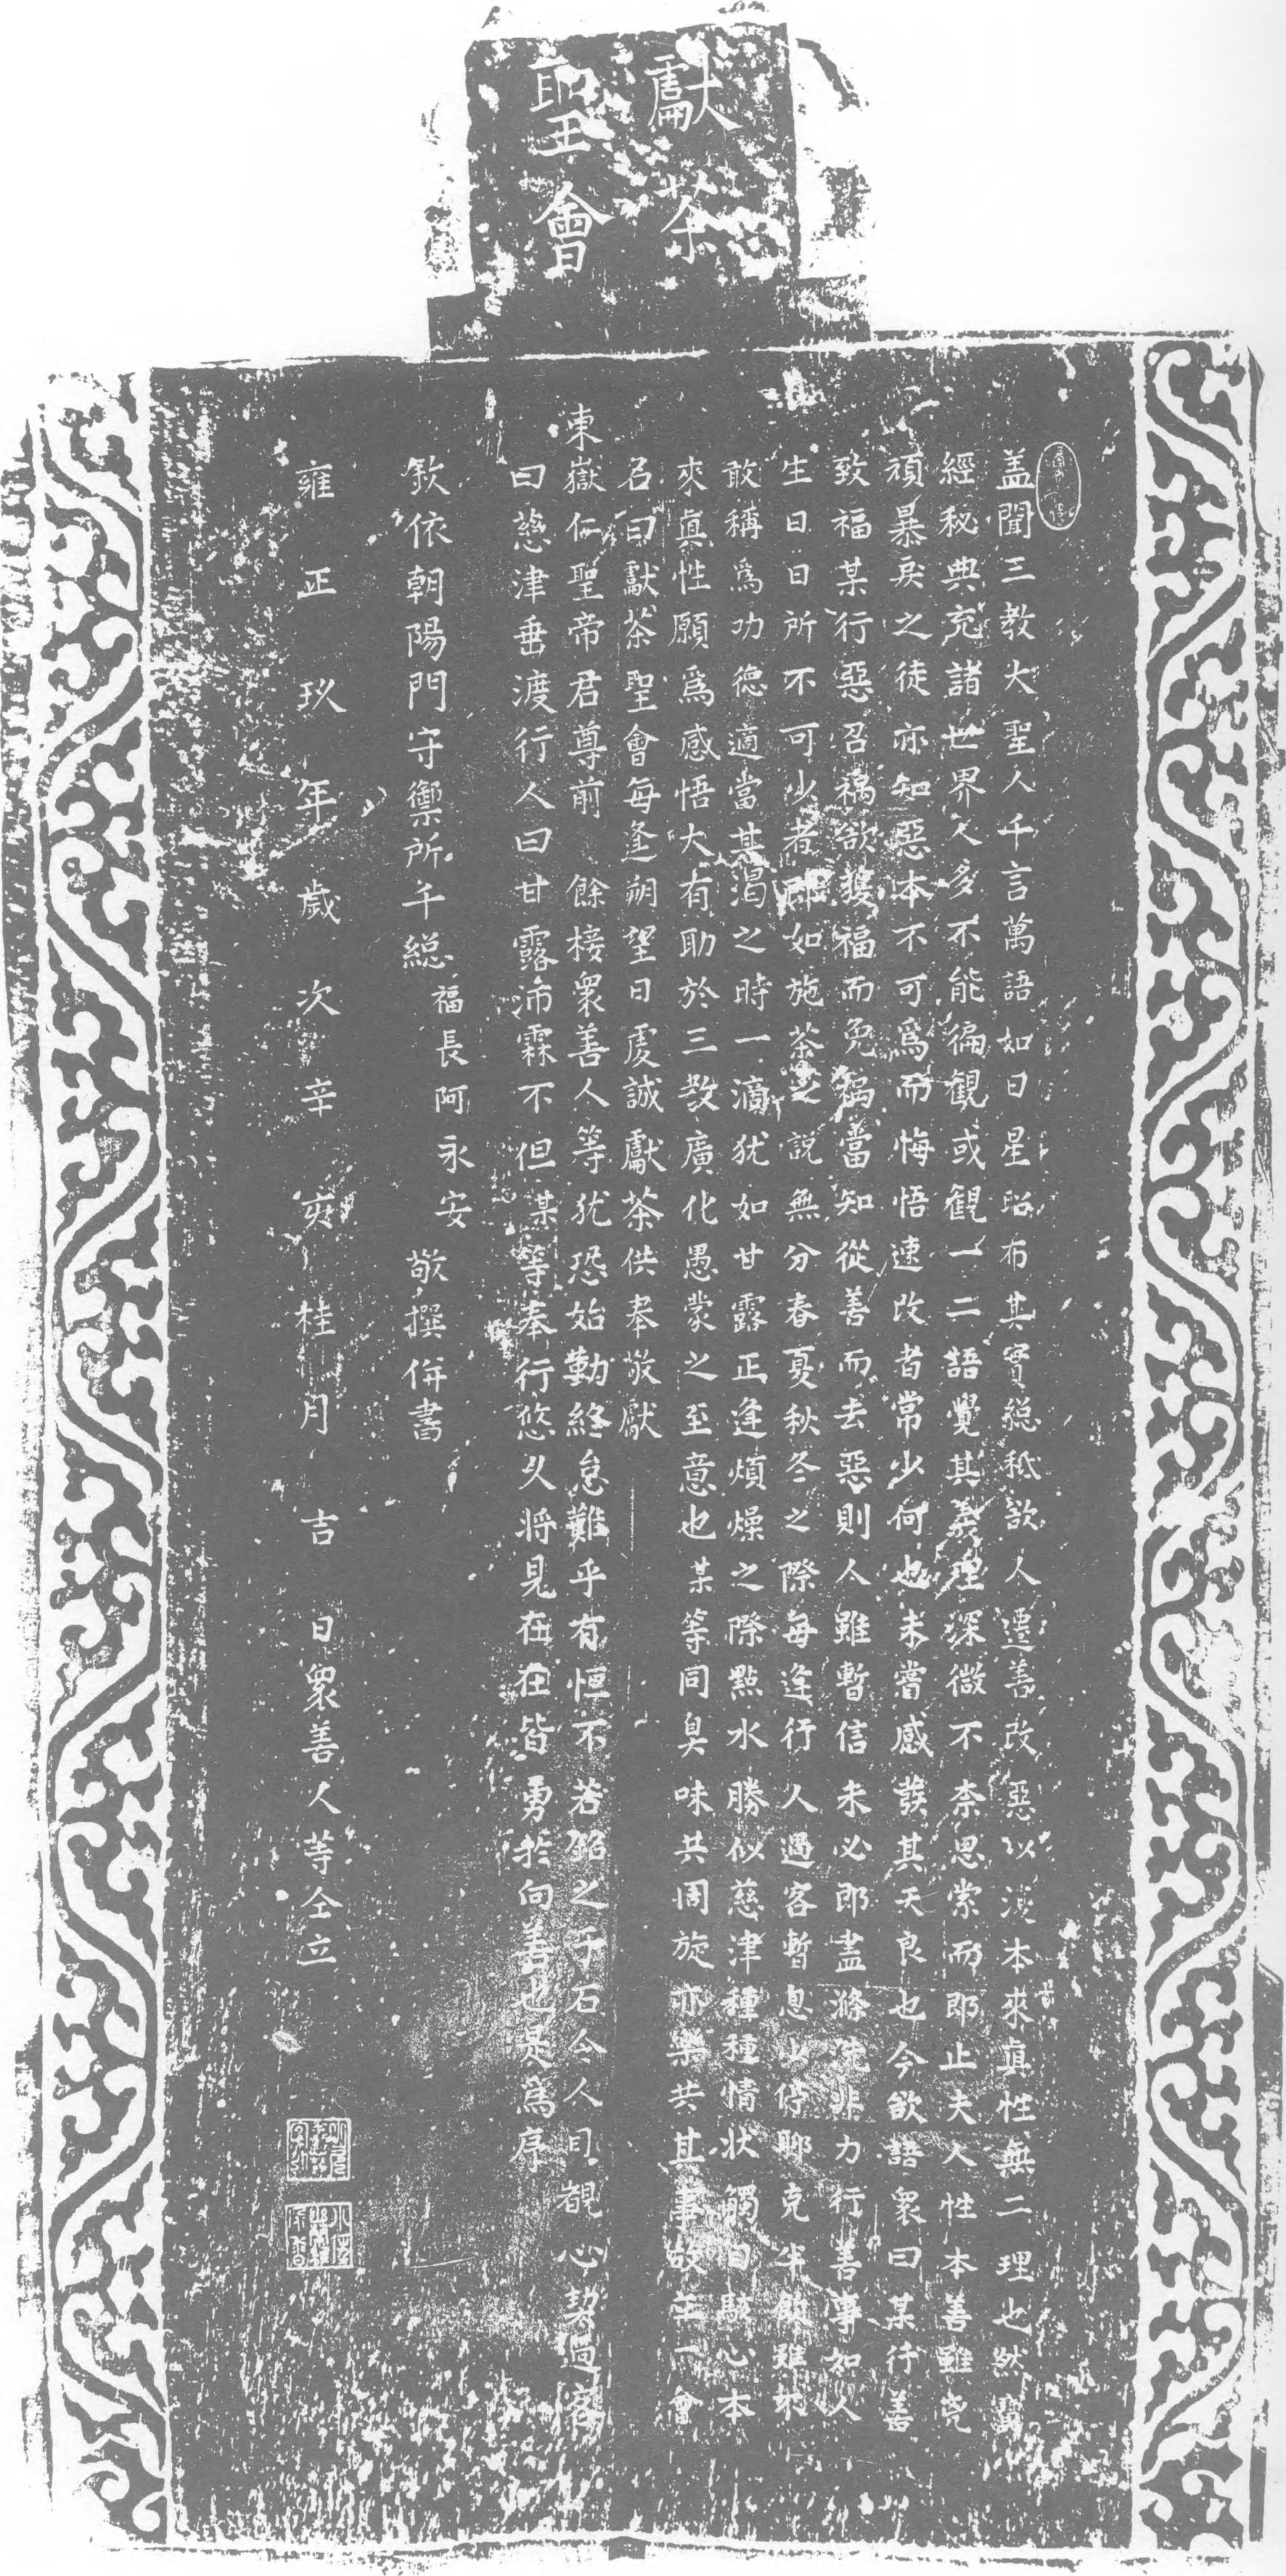 獻茶
聖會
盖聞三教大聖人千言萬語如日星昭布其實總秪欲人遷善改惡以復本來真性無二理也然萬
經秘典充諸世界人多不能徧觀或觀一二語覺其義理深微不柰思索而即止夫人性本善雖兇
頑暴戾之徒亦知惡本不可爲而悔悟速改者常少何也未嘗感發其天良也今欲語衆曰某行善
致福某行惡召禍欲獲福而免禍當知從善而去惡則人雖暫信未必即盡滌洗非力行善事如人
生日日所不可少者即如施茶之說無分春夏秋冬之際每逢行人過客暫息少停聊克半飲雖不
敢稱爲功德適當其渴之時一滴犹如甘露正逢煩燥之際點水勝似慈津種種情狀觸目駭心本
來真性願爲感悟大有助於三教廣化愚蒙之至意也某等同臭味共周旋亦樂共其事故立一會
名曰獻茶聖會每逢朔望日虔誠獻茶供奉敬獻
東嶽仁聖帝君尊前 餘接衆善人等犹恐始勤終怠難乎有恒不若銘之于石令人目覩心契過客
曰慈津垂渡行人曰甘露沛霖不但某等奉行悠久将見在在皆勇於向善也是爲序
欽依朝陽門守禦所千総福長阿永安敬撰併書
雍正玖年歲次辛亥桂月吉日衆善人等仝立